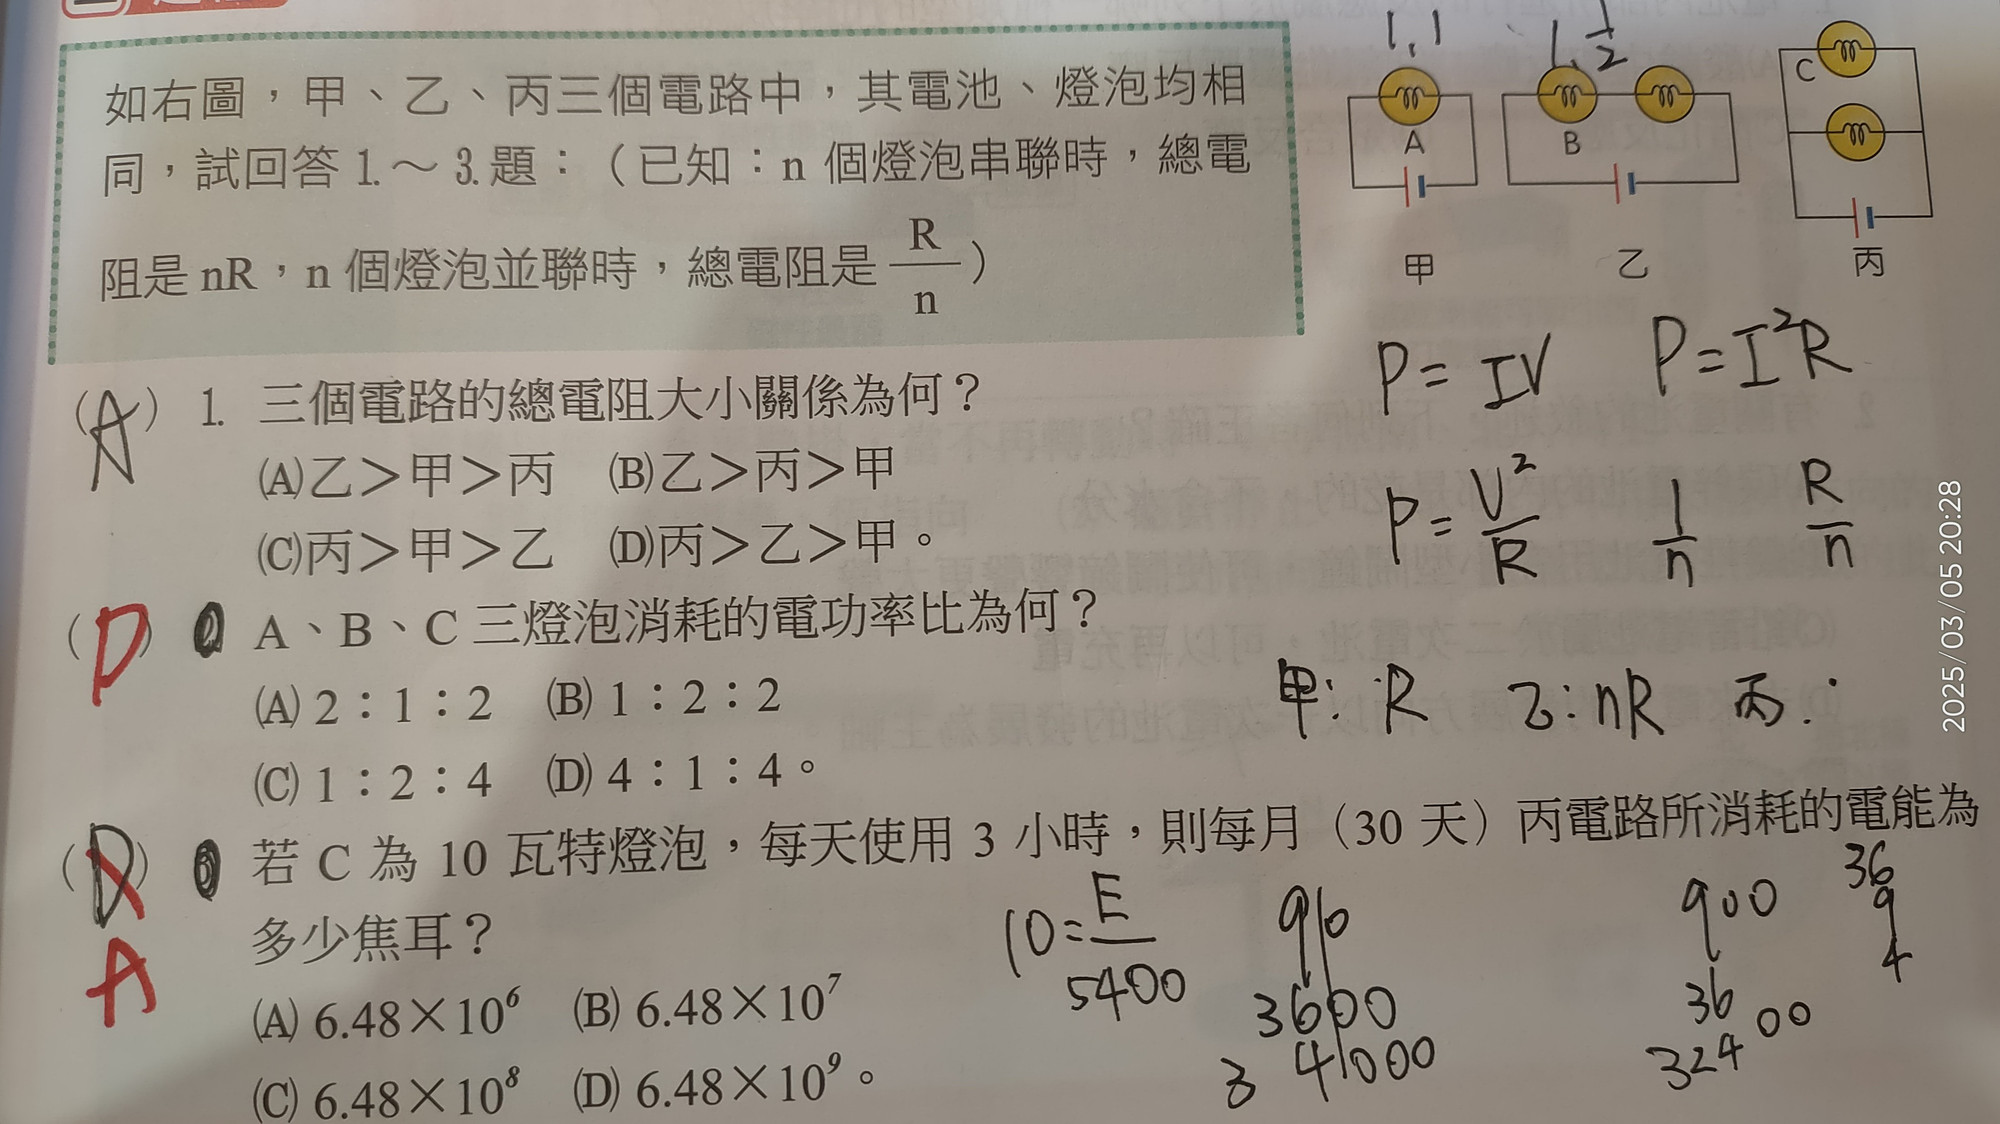 如右圖，甲、乙、丙三個電路中，其電池、燈泡均相
同，試回答 1.～ 3.題：（已知：n 個燈泡串聯時，總電
阻是 nR，n 個燈泡並聯時，總電阻是 R/n）
1,1
1, 1/2
A
B
C
甲
乙
丙
P= IV P=I²R
P= V²/R 1/n R/n
(A) 1. 三個電路的總電阻大小關係為何？
(A)乙＞甲＞丙 (B)乙＞丙＞甲
(C)丙＞甲＞乙 (D)丙＞乙＞甲。
(D) 2 A、B、C 三燈泡消耗的電功率比為何？
(A) 2：1：2 (B) 1：2：2
(C) 1：2：4 (D) 4：1：4。
甲: R 乙: nR 丙:
(D) 3 若 C 為 10 瓦特燈泡，每天使用 3 小時，則每月（30 天）丙電路所消耗的電能為
A 多少焦耳？
(A) 6.48×10⁶ (B) 6.48×10⁷
(C) 6.48×10⁸ (D) 6.48×10⁹。
10= E/5400
90
3600
3 41000
900
36 00
324
36
9
4
2025/03/05 20:28